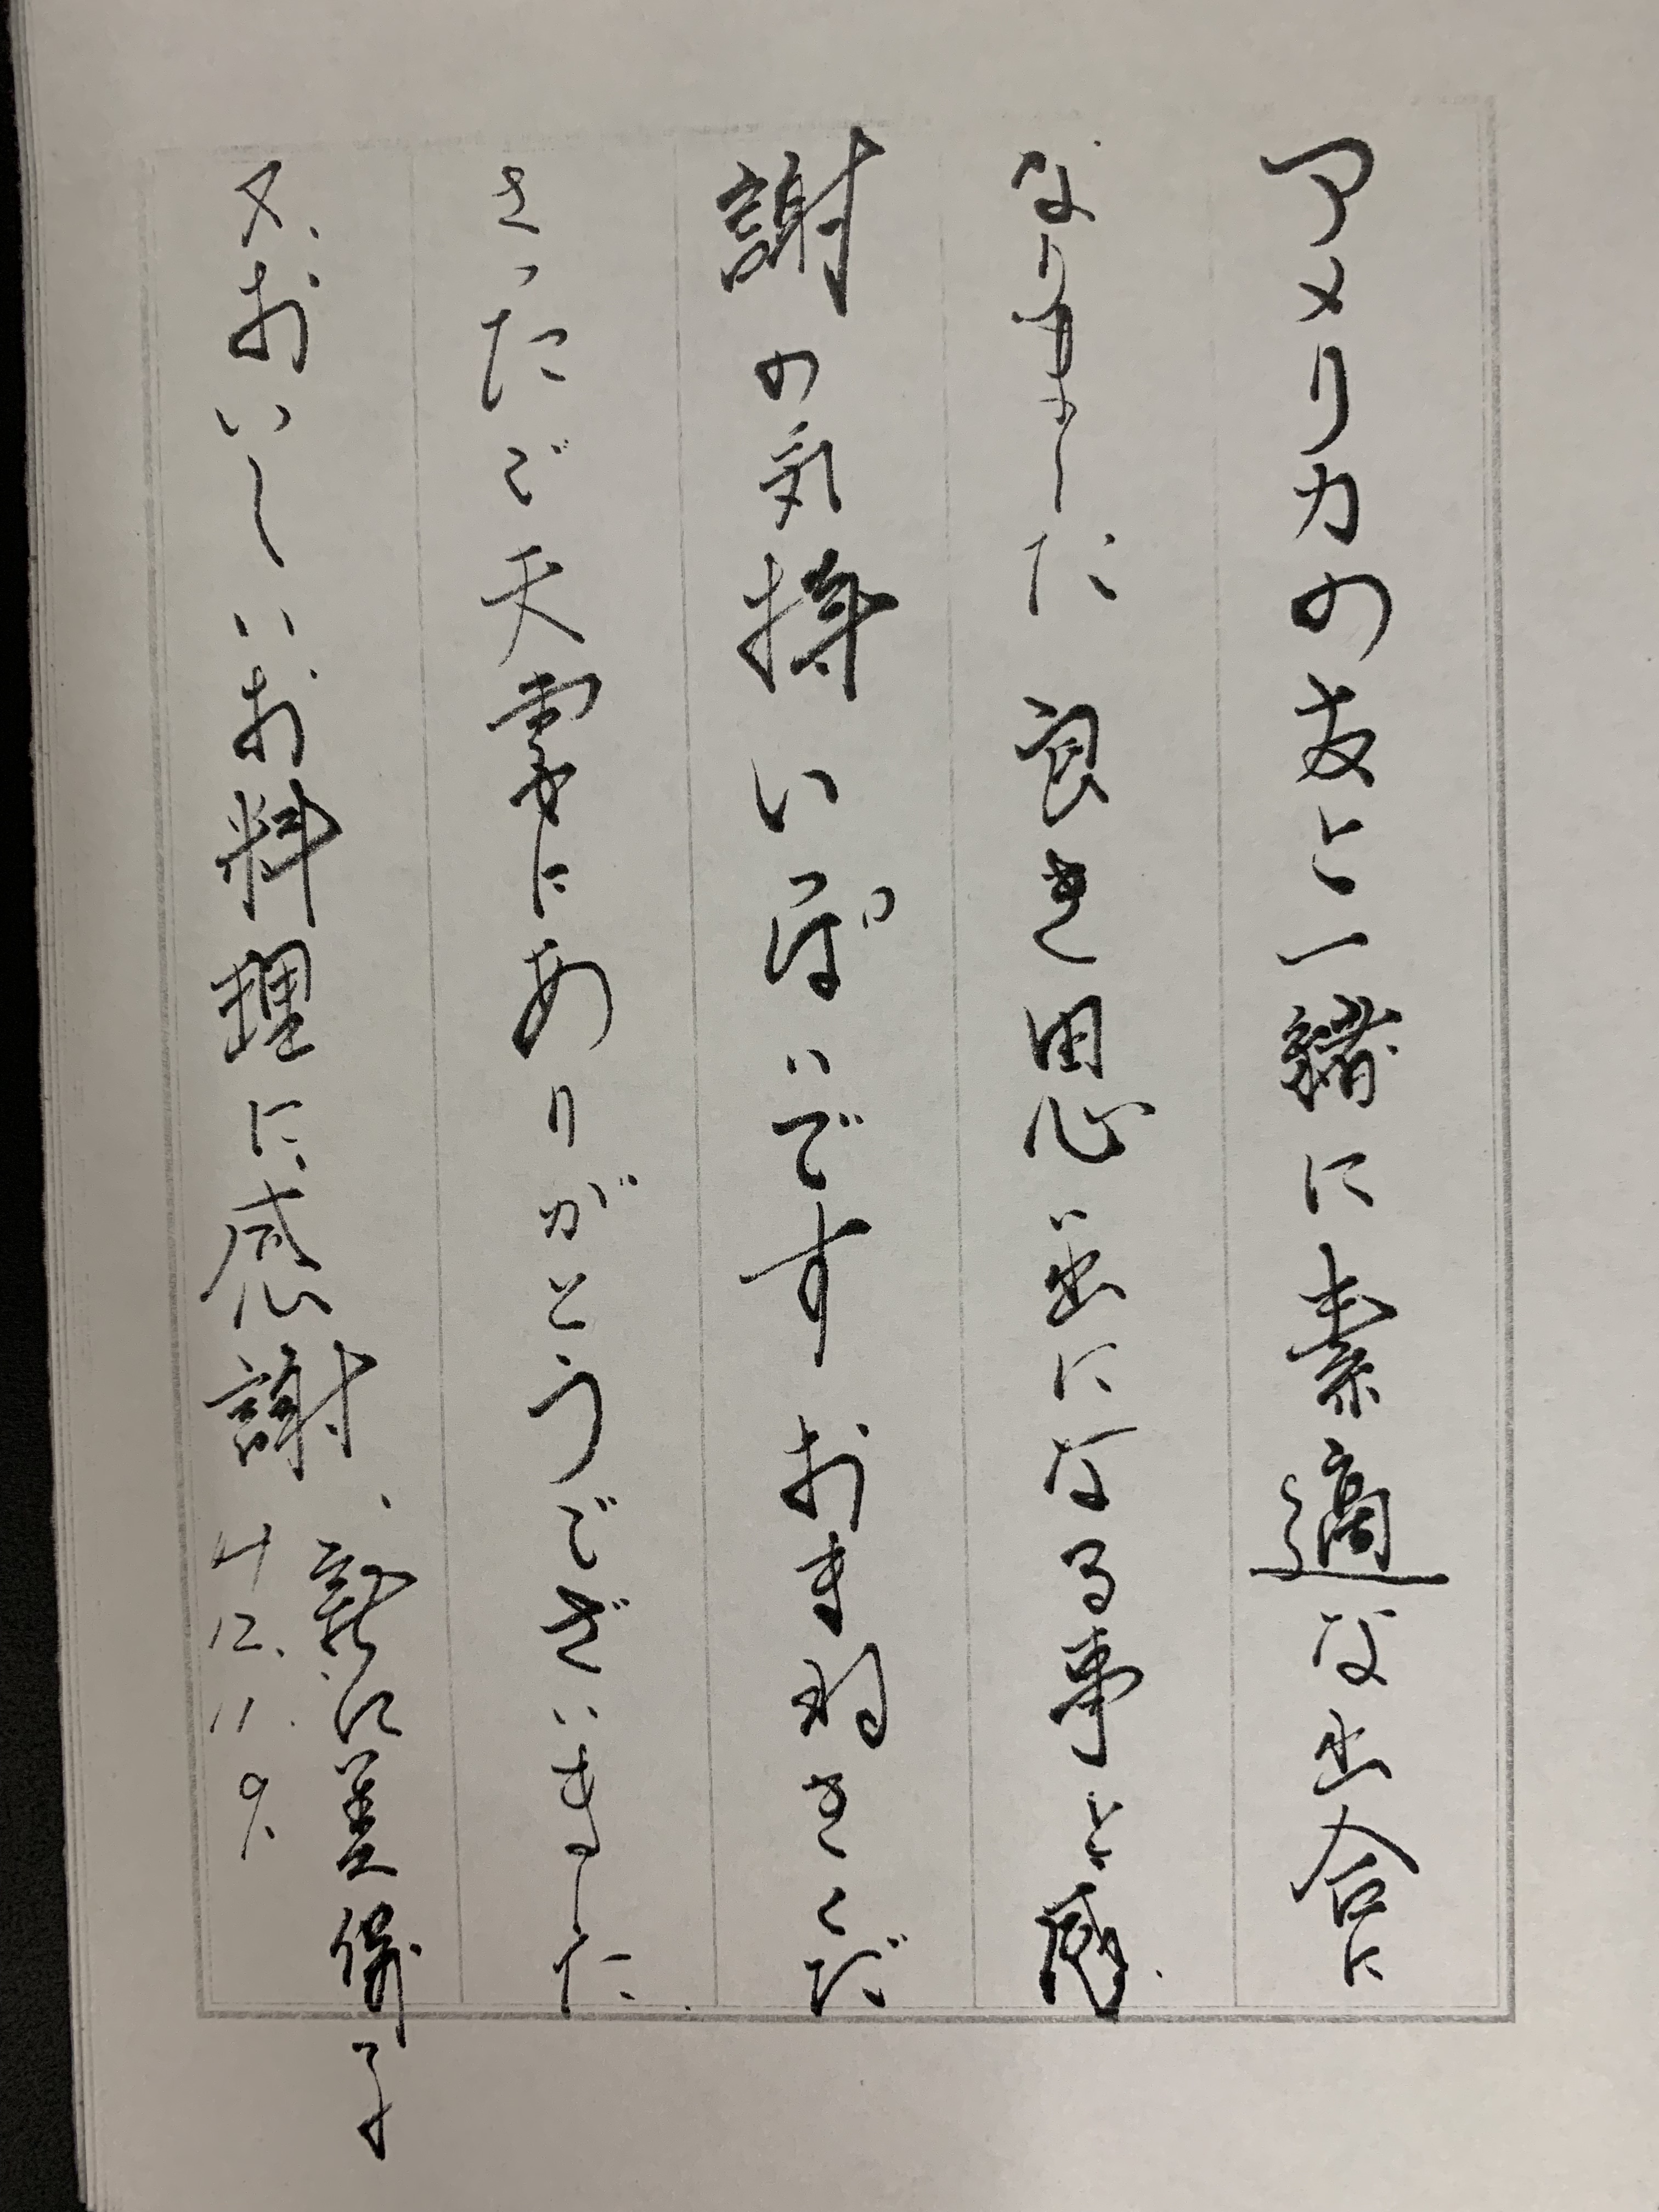 アメリカの友と一緒に素適な出合に
なりました 良き思い出になる事と感
謝の気持いっぱいです おまねきくだ
さったご夫妻にありがとうございました
又、おいしいお料理に感謝、
美保子
H12.11.9.